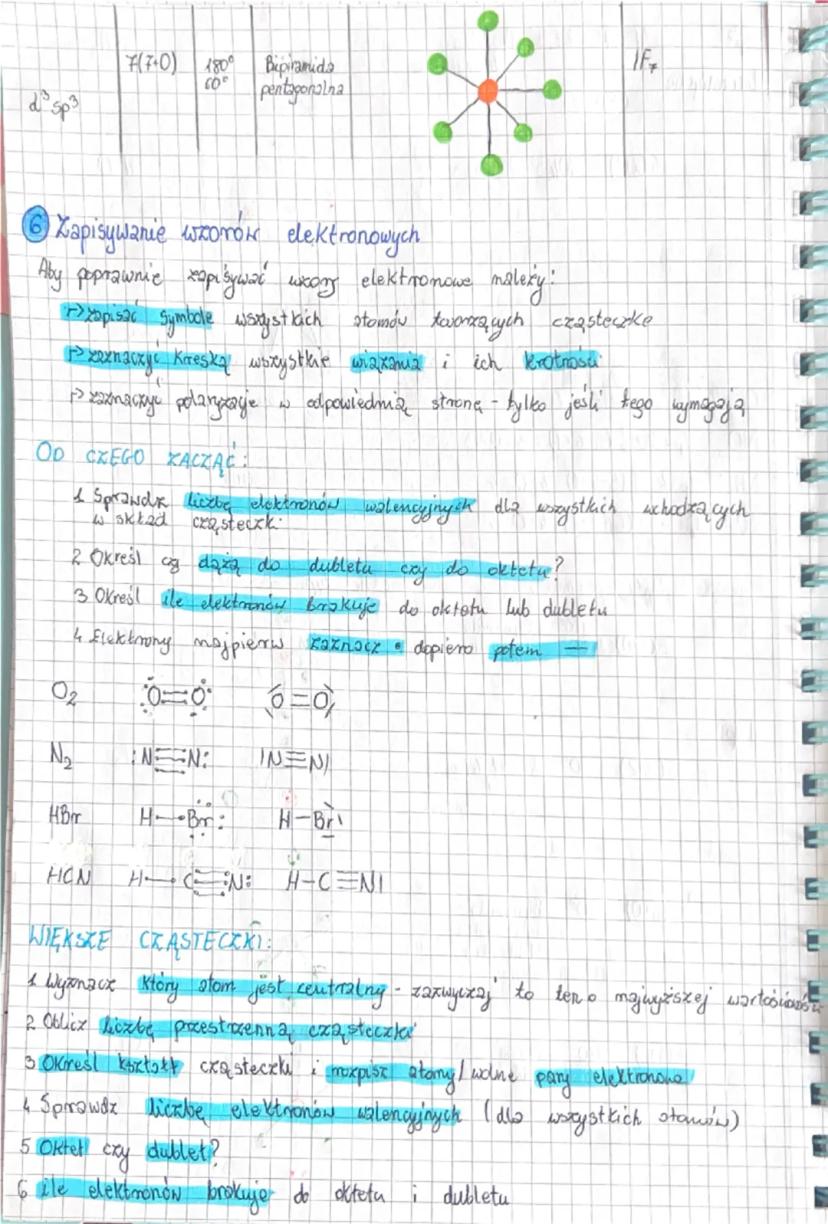 d³sp³ 7(7+0) 180° 60° Bipiramida pentagonalna IF₇
6 Zapisywanie wzorów elektronowych
Aby poprawnie zapisywać wzory elektronowe należy:
↦ zapisać symbole wszystkich atomów tworzących cząsteczkę
↦ zaznaczyć kreską wszystkie wiązania i ich krotności
↦ zaznaczyć polaryzację w odpowiednią stronę - tylko jeśli tego wymagają
OD CZEGO ZACZĄĆ:
1 Sprawdź liczbę elektronów walencyjnych dla wszystkich wchodzących
w skład cząsteczki
2 Określ czy dążą do dubletu czy do oktetu?
3 Określ ile elektronów brakuje do oktetu lub dubletu
4 Elektrony najpierw zaznacz • dopiero potem —
O₂ O=O O=O
N₂ :N≡N: |N≡N|
HBr H—Br: H—Br|
HCN H—C≡N: H-C≡N|
WIĘKSZE CZĄSTECZKI:
1 Wyznacz który atom jest centralny - zazwyczaj to ten o najwyższej wartościowości
2 Oblicz liczbę przestrzenną cząsteczki
3 Określ kształt cząsteczki i rozpisz atomy/wolne pary elektronowe
4 Sprawdź liczbę elektronów walencyjnych (dla wszystkich atomów)
5 Oktet czy dublet?
6 ile elektronów brakuje do oktetu i dubletu